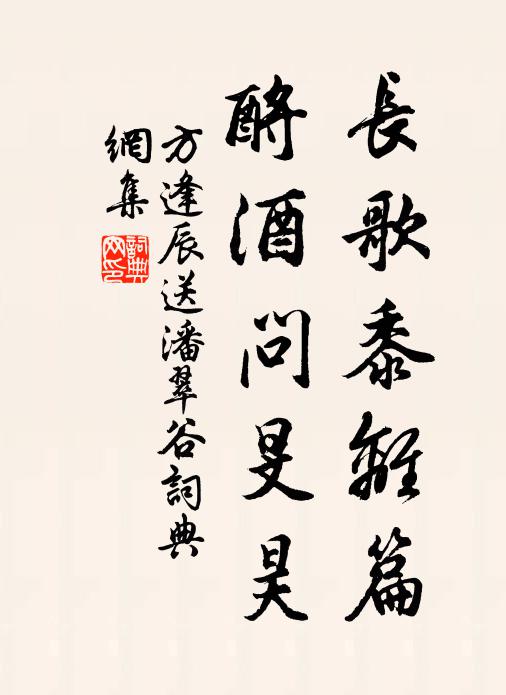 長歌黍離篇
酹酒問旻昊
方逢辰送潘翠谷詞典
網集
詞典網印